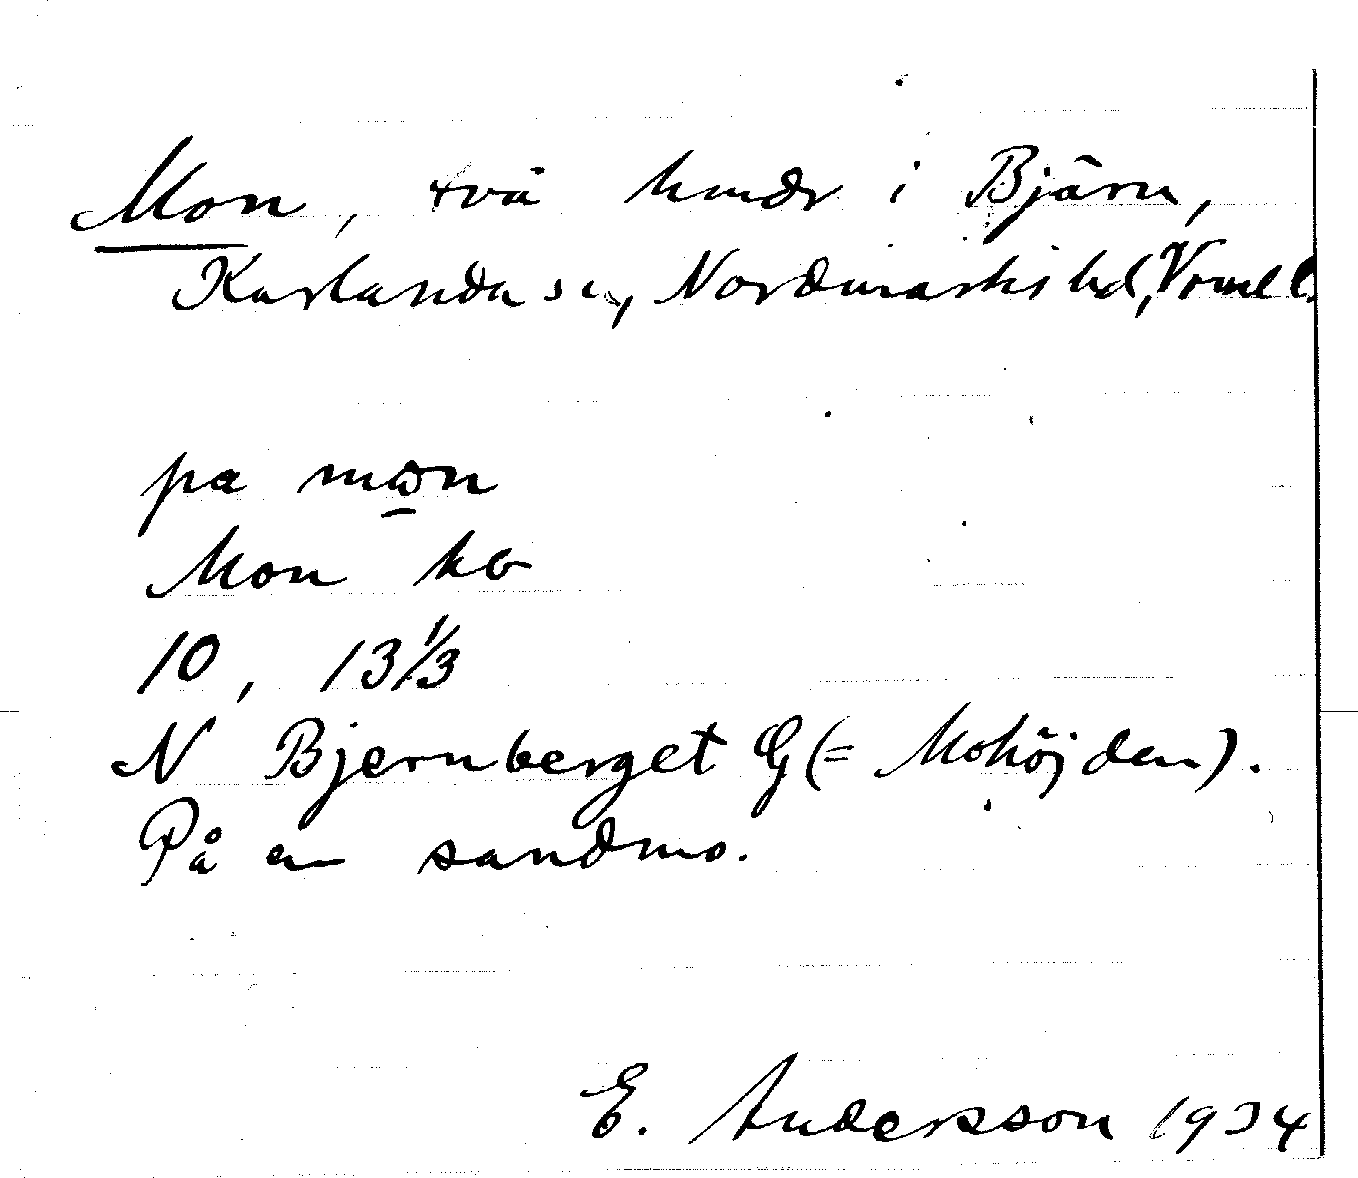 Mon, två hmdr i Bjärn,
Karlanda sn, Nordmarks hd, Vrml l.
pa mωn
Mon kb
10, 13 1/3
N Bjernberget G (= Mohöjden).
På en sandmo.
E. Andersson 1934